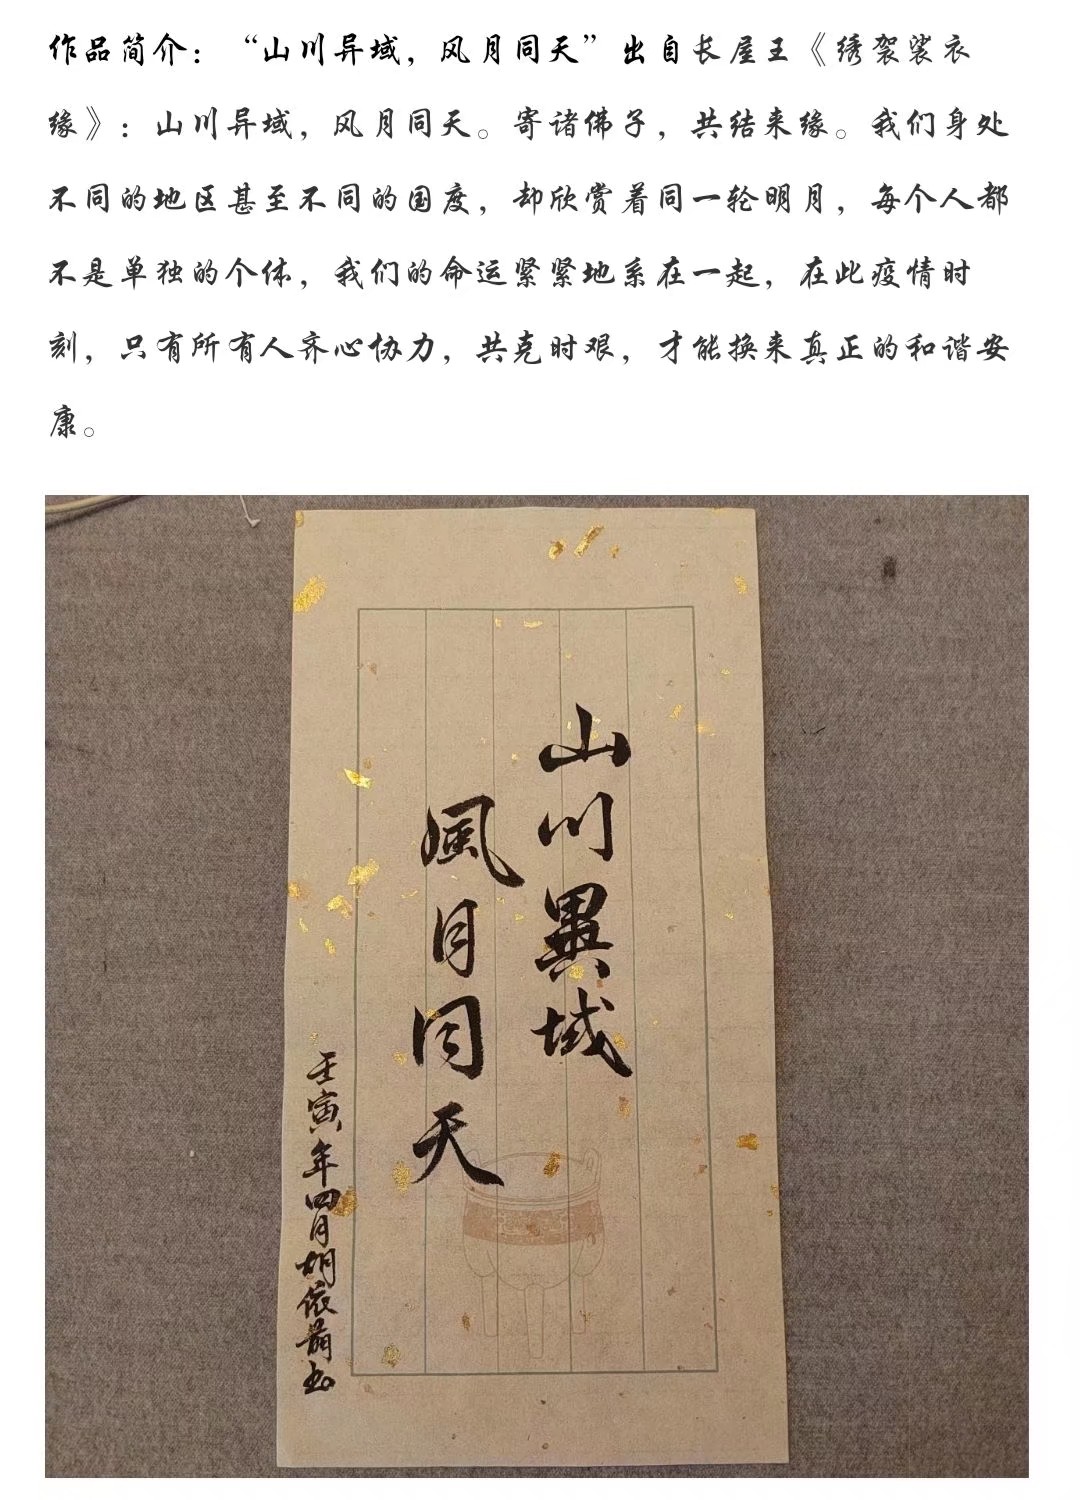 作品简介：“山川异域，风月同天”出自长屋王《绣袈裟衣
缘》：山川异域，风月同天。寄诸佛子，共结来缘。我们身处
不同的地区甚至不同的国度，却欣赏着同一轮明月，每个人都
不是单独的个体，我们的命运紧紧地系在一起，在此疫情时
刻，只有所有人齐心协力，共克时艰，才能换来真正的和谐安
康。
山川異域
風月同天
壬寅年四月胡依蕳书